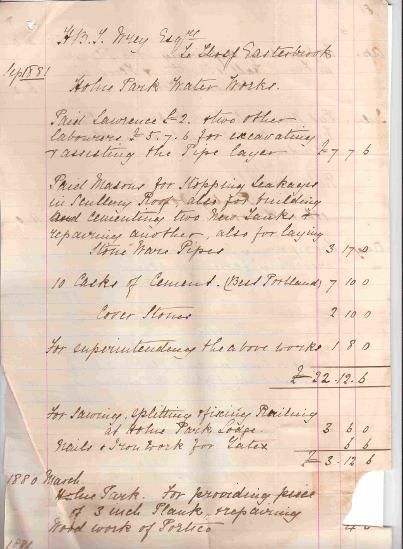 H.B.T. Wrey Esqre
To Thos Easterbrook
Sep 1881
Holne Park Water Works.
Paid Lawrence £2. & two other
labourers £5.7.6 for excavating
& assisting the Pipe layer £7 7 6
Paid Masons for Stopping Leakages
in Scullery Roof also for building
and cementing two New Tanks &
repairing another, also for laying
Stone Ware Pipes 3 17 0
10 Casks of Cement. (Best Portland) 7 10 0
Cover Stones 2 10 0
For superintending the above works 1 8 0
£22.12.6
For Sawing, splitting & fixing Railing
at Holne Park Lodge. 3 6 0
Nails & Iron Work for Gates 6 6
£3.12 6
1880 March
Holne Park. For providing piece
of 3 inch Plank & repairing
Wood work of Portico
1881